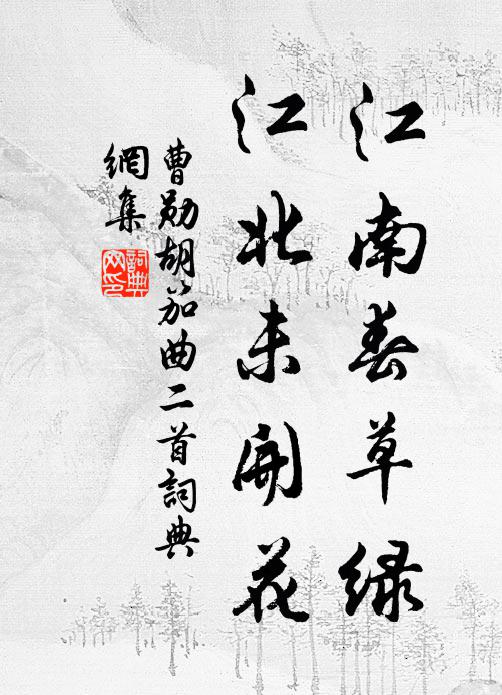 江南春草绿
江北未开花
曹勋胡笳曲二首詞典
網集
詞典
网印